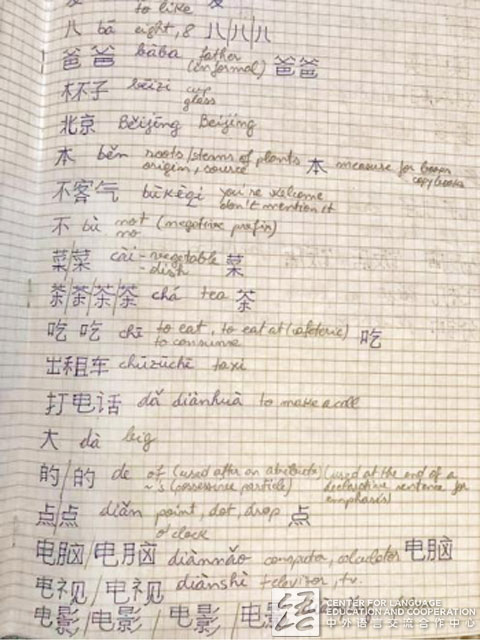 to like
八 bā eight, 8 八/八/八
爸爸 bàba father (informal) 爸爸
杯子 bēizi cup glass
北京 Běijīng Beijing
本 běn roots/stems of plants origin, source 本 measure for books copybooks
不客气 bùkèqi you're welcome don't mention it
不 bù not no (negative prefix)
菜/菜 cài - vegetable - dish 菜
茶/茶/茶/茶 chá tea 茶
吃 吃 chī to eat, to eat at (cafeteria) to consume 吃
出租车 chūzūchē taxi
打电话 dǎ diànhuà to make a call
大 dà big
的/的 de of (used after an attribute) ~'s (possessive particle) (used at the end of a declarative sentence for emphasis)
点/点 diǎn point, dot, drop o'clock 点
电脑/电脑 diànnǎo computer, calculator 电脑
电视/电视 diànshì televisor, tv.
电影/电影/电影/电影
语
CENTER FOR LANGUAGE
EDUCATION AND COOPERATION
中外语言交流合作中心